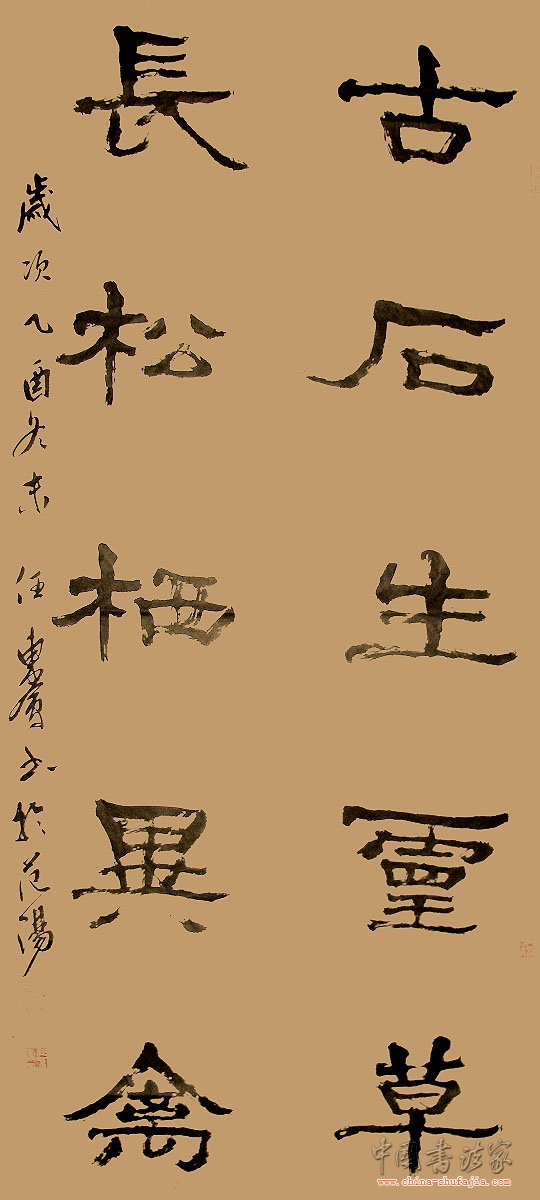 古石生靈草
長松栖異禽
歲次乙酉冬末 任東廣书於范陽
中国书法家
www.china-shufajia.com